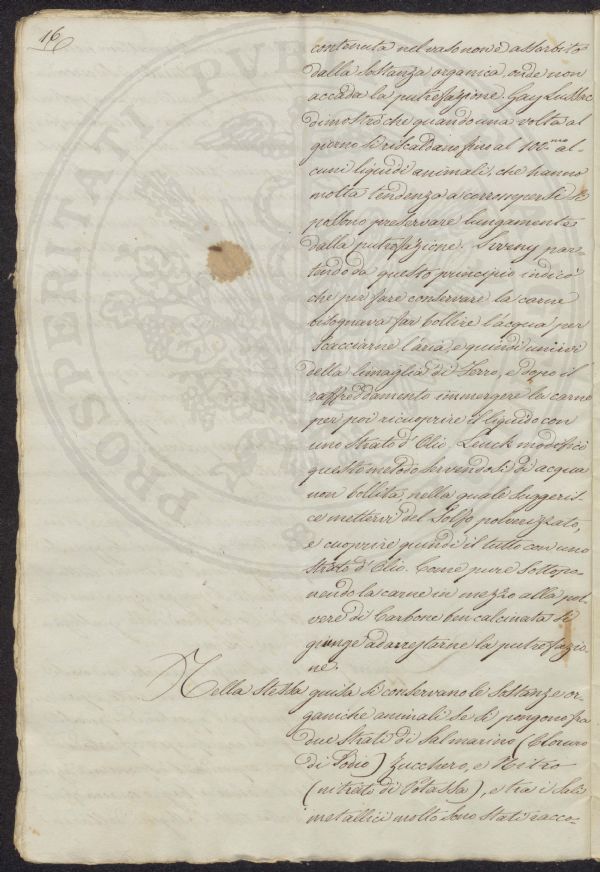 16
contenuta nel vaso non è assorbito
dalla sostanza organica, onde non
accada la putrefazione. Gay Lussac
dimostrò che quando una volta al
giorno si riscaldano fino al 100.mo al-
cuni liquidi animali, che hanno
molta tendenza a corrompersi si
possono preservare lungamente
dalla putrefazione. par-
tendo da questo principio indicò
che per fare conservare la carne
bisognava far bollire l'acqua per
scacciarne l'aria, e quindi unirvi
della limaglia di Ferro, e dopo il
raffreddamento immergere la carne
per poi ricuoprire il liquido con
uno strato d'Olio. Leuck modificò
questo metodo servendosi di acqua
non bollita, nella quale suggeris-
ce mettervi del Solfo polverizzato,
e cuoprire quindi il tutto con uno
strato d'Olio. Come pure sottopo-
nendo la carne in mezzo alla pol-
vere di Carbone ben calcinata si
giunge ad arrestarne la putrefazio-
ne.
Nella stessa guisa si conservano le sostanze or-
ganiche animali se si pongono fra
due strati di Sal marino (Cloruro
di Sodio) Zucchero, e Nitro
(nitrato di Potassa), e tra i Sali
metallici molto sono stati racco-
PROSPERITATI PVBLICAE